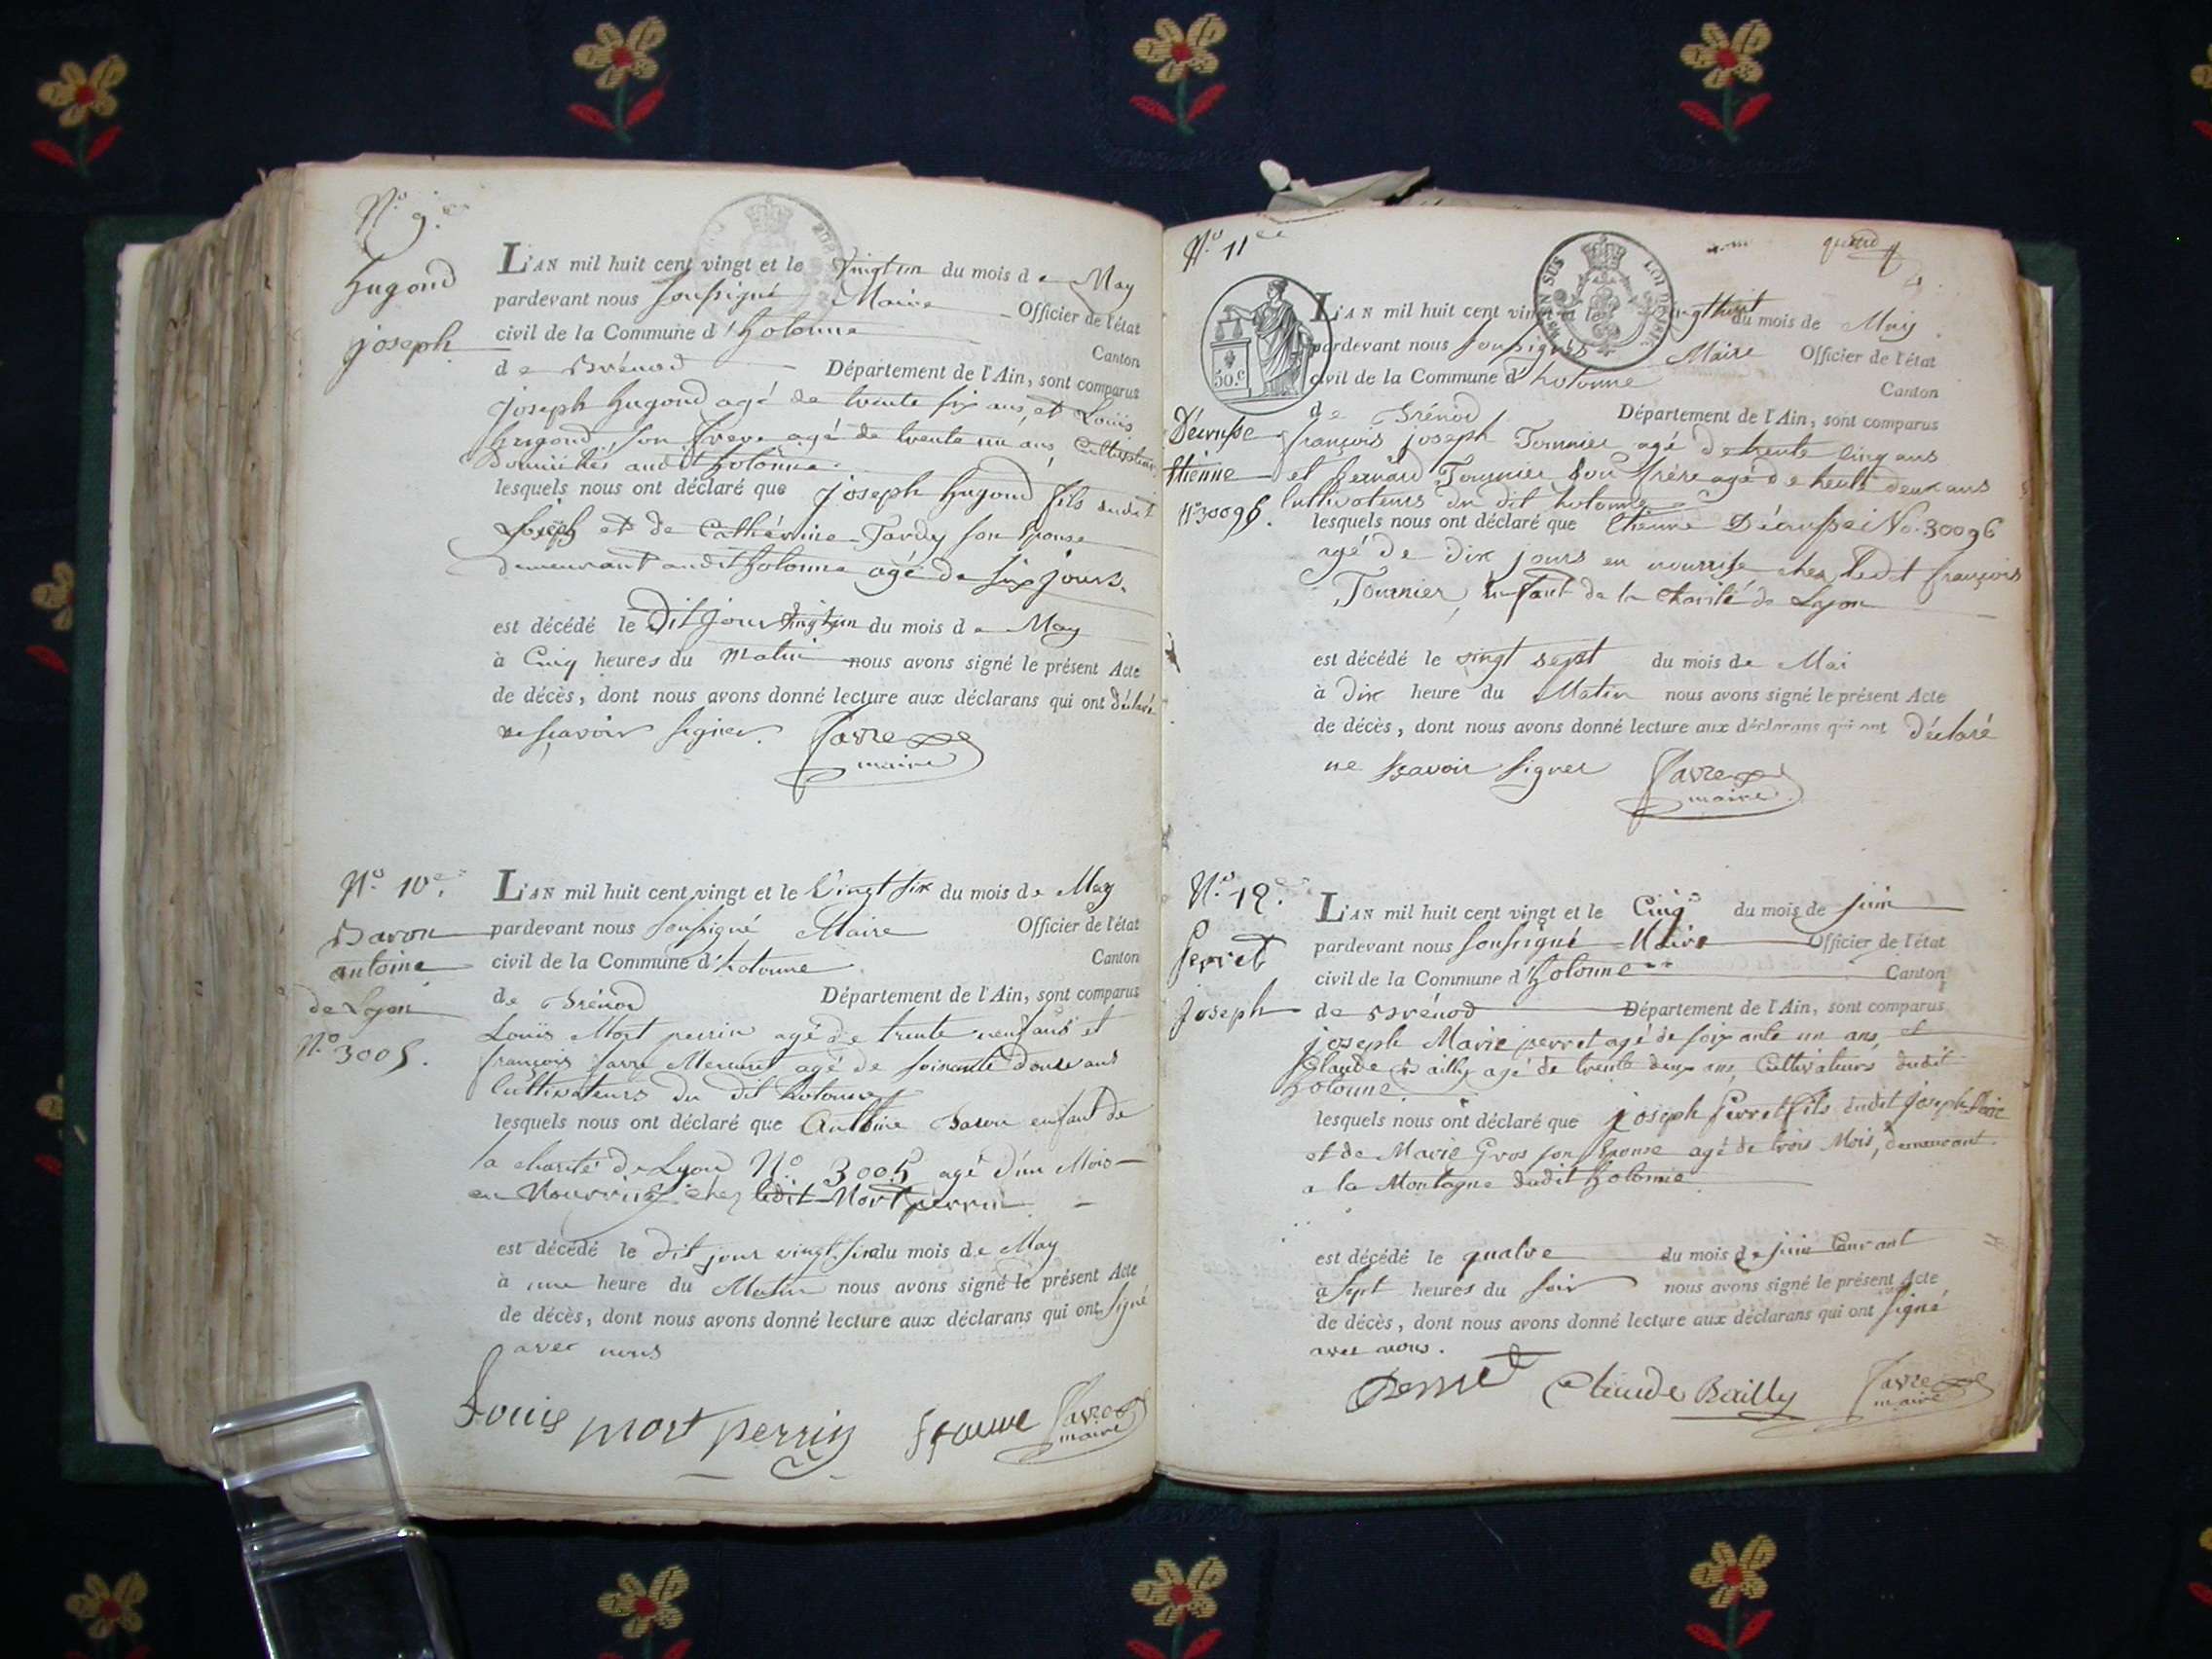 N.o 9.
Hugond
joseph
L'AN mil huit cent vingt et le Vingt un du mois de May
pardevant nous soussigné Maire Officier de l'état
civil de la Commune d'hotonne Canton
de Brénod Département de l'Ain, sont comparus
joseph hugond agé de trente six ans, et Louis
hugond, son frere agé de trente un ans Cultivateurs
Domiciliés audit hotonne
lesquels nous ont déclaré que joseph hugond fils dudit
Joseph et de Cathérine Tardy son Epouse
demeurant audit hotonne agé de six jours.
est décédé le Dit Jour vingt un du mois de May
à Cinq heures du matin nous avons signé le présent Acte
de décès, dont nous avons donné lecture aux déclarans qui ont déclaré
ne sçavoir signer. Favre
maire
N.o 10e.
Baron
antoine
de Lyon
N.o 3005.
L'AN mil huit cent vingt et le Vingt six du mois de May
pardevant nous soussigné Maire Officier de l'état
civil de la Commune d'hotonne Canton
de Brénod Département de l'Ain, sont comparus
Louis Mort perrin agé de trente neuf ans et
françois favre Mercuret agé de soixante douze ans
Cultivateurs du dit hotonne
lesquels nous ont déclaré que Antoine Baron enfant de
la charité de Lyon N.o 3005 agé d'un Mois
en Nourrice chez ledit Mort perrin
est décédé le dit jour vingt six du mois de May
à une heure du Matin nous avons signé le présent Acte
de décès, dont nous avons donné lecture aux déclarans qui ont signé
avec nous
Louis mort perrin Favre
maire
N.o 11
50.c
Décrusse
Etienne
N.o 30096.
L'AN mil huit cent vingt et le vingt huit du mois de May
pardevant nous soussignés Maire Officier de l'état
civil de la Commune d'hotonne Canton
de Brénod Département de l'Ain, sont comparus
françois joseph Tournier agé de trente cinq ans
et Bernard Tournier son frère agé de trente deux ans
Cultivateurs du dit hotonne
lesquels nous ont déclaré que Etienne Décrusse No. 30096
agé de dix jours en nourrise chez ledit françois
Tournier, enfant de la Charité de Lyon
est décédé le vingt sept du mois de Mai
à dix heure du Matin nous avons signé le présent Acte
de décès, dont nous avons donné lecture aux déclarans qui ont déclaré
ne sçavoir signer Favre
maire
N.o 12.
Perret
joseph
L'AN mil huit cent vingt et le Cinq du mois de juin
pardevant nous soussigné Maire Officier de l'état
civil de la Commune d'hotonne Canton
de Brénod Département de l'Ain, sont comparus
joseph Marie perret agé de soixante un ans, et
Claude Bailly agé de trente deux ans, Cultivateurs dudit
hotonne
lesquels nous ont déclaré que joseph Perret fils dudit Joseph Marie
et de Marie Gros son Epouse agé de trois Mois, demeurant
a la Montagne dudit hotonne
est décédé le quatre du mois de juin Courant
à sept heures du soir nous avons signé le présent Acte
de décès, dont nous avons donné lecture aux déclarans qui ont signé
avec nous.
Perret Claude Bailly Favre
maire